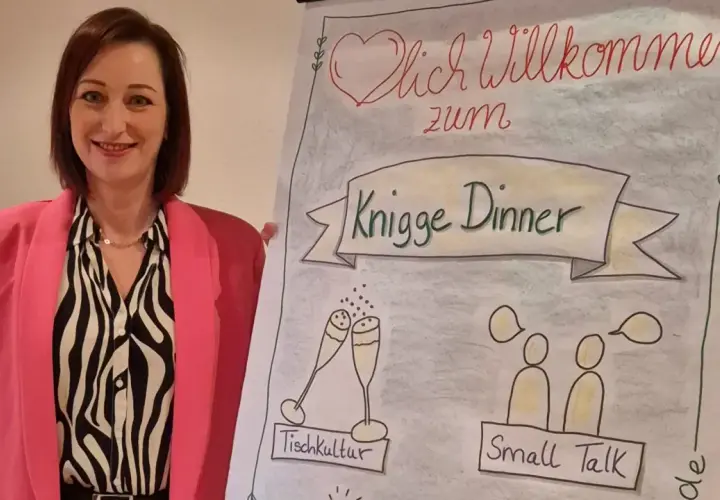 lich Willkomme
zum
Knigge Dinner
Tischkultur
Small Talk
de